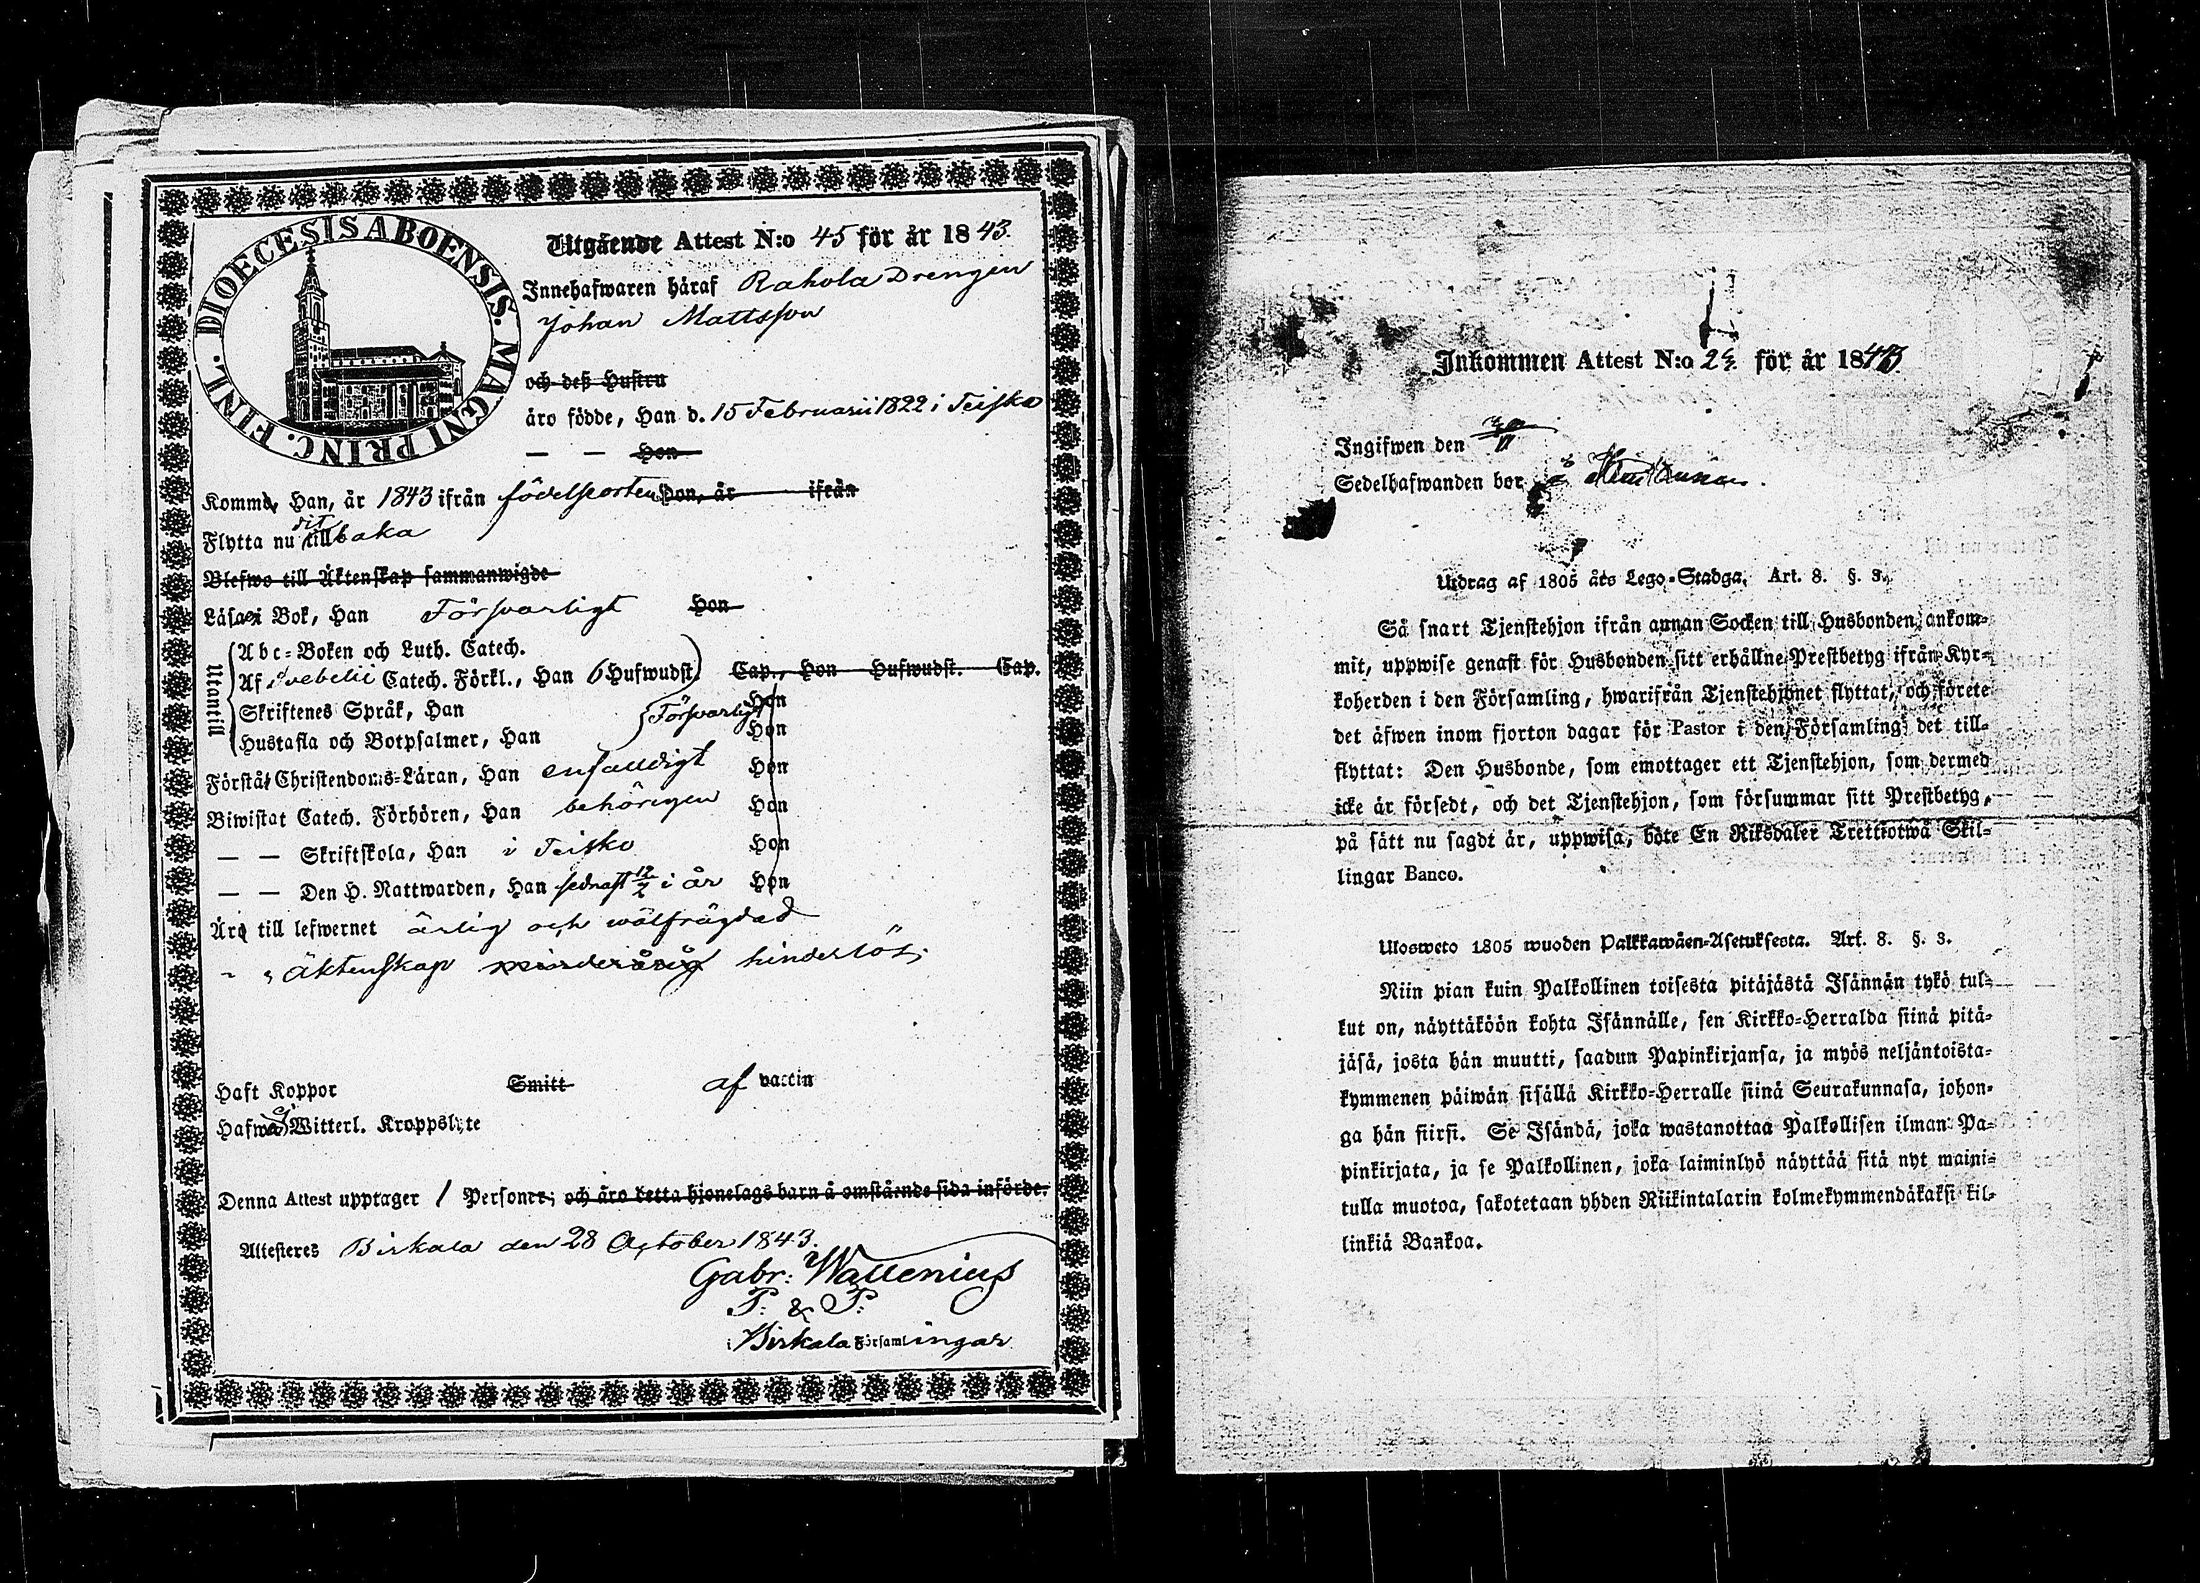 DIOECESIS ABOENSIS. MAGNI PRINC. FINL.
Utgående Attest N:o 45 för år 1843.
Innehafwaren häraf Rahola Drengen
Johan Mattsson
och deß Hustru
äro födde, Han d. 15 Februarii 1822 i Teisko
— — Hon
Komme, Han, år 1843 ifrån födelseorten Hon, år ifrån
dit
Flytta nu tillbaka
Blefwo till Äktenskap sammanwigde
Läsa i Bok, Han Försvarligt Hon
Utantill
Abc-Boken och Luth. Catech.
Af Svebelii Catech. Förkl., Han 6 Hufwudst. Cap., Hon Hufwudst. Cap.
Skriftenes Språk, Han Försvarligt Hon
Hustafla och Botpsalmer, Han Hon
Förstår Christendoms-Läran, Han enfaldigt Hon
Biwistat Catech. Förhören, Han behörigen Hon
— — Skriftskola, Han i Teisko Hon
— — Den H. Nattwarden, Han sednast 12/7 i år Hon
Äro till lefwernet ärlig och wälfrägdad
" " Äktenskap minderårig hinderlös
Haft Koppor Smitt af vaccin
Hafwa ej Witterl. Kroppslyte
Denna Attest upptager 1 Personer; och äro detta hjonelags barn å omstående sida införde.
Attesteres Birkala den 28 October 1843.
Gabr: Wallenius
P: & P:
i Birkala Församlingar
Inkommen Attest N:o 2 för år 1843
Ingifwen den
Sedelhafwanden bor
Utdrag af 1805 års Lego-Stadga. Art. 8. §. 3.
Så snart Tjenstehjon ifrån annan Socken till Husbonden ankom-
mit, uppwise genast för Husbonden sitt erhållne Prestbetyg ifrån Kyr-
koherden i den Församling, hwarifrån Tjenstehjonet flyttat, och förete
det äfwen inom fjorton dagar för Pastor i den Församling det till-
flyttat: Den Husbonde, som emottager ett Tjenstehjon, som dermed
icke är försedt, och det Tjenstehjon, som försummar sitt Prestbetyg,
på sätt nu sagdt är, uppwisa, böte En Riksdaler Trettiotwå Skil-
lingar Banco.
Ulosweto 1805 wuoden Palkkawäen-Asetuksesta. Art. 8. §. 3.
Niin pian kuin Palkollinen toisesta pitäjästä Isännän tykö tul-
kut on, näyttäköön kohta Isännälle, sen Kirkko-Herralda siinä pitä-
jäsä, josta hän muutti, saadun Papinkirjansa, ja myös neljäntoista-
kymmenen päiwän sisällä Kirkko-Herralle siinä Seurakunnasa, johon-
ga hän siirsi. Se Isändä, joka wastanottaa Palkollisen ilman Pa-
pinkirjata, ja se Palkollinen, joka laiminlyö näyttää sitä nyt maini-
tulla muotoa, sakotetaan yhden Riikintalarin kolmekymmendäkaksi kil-
linkiä Bankoa.